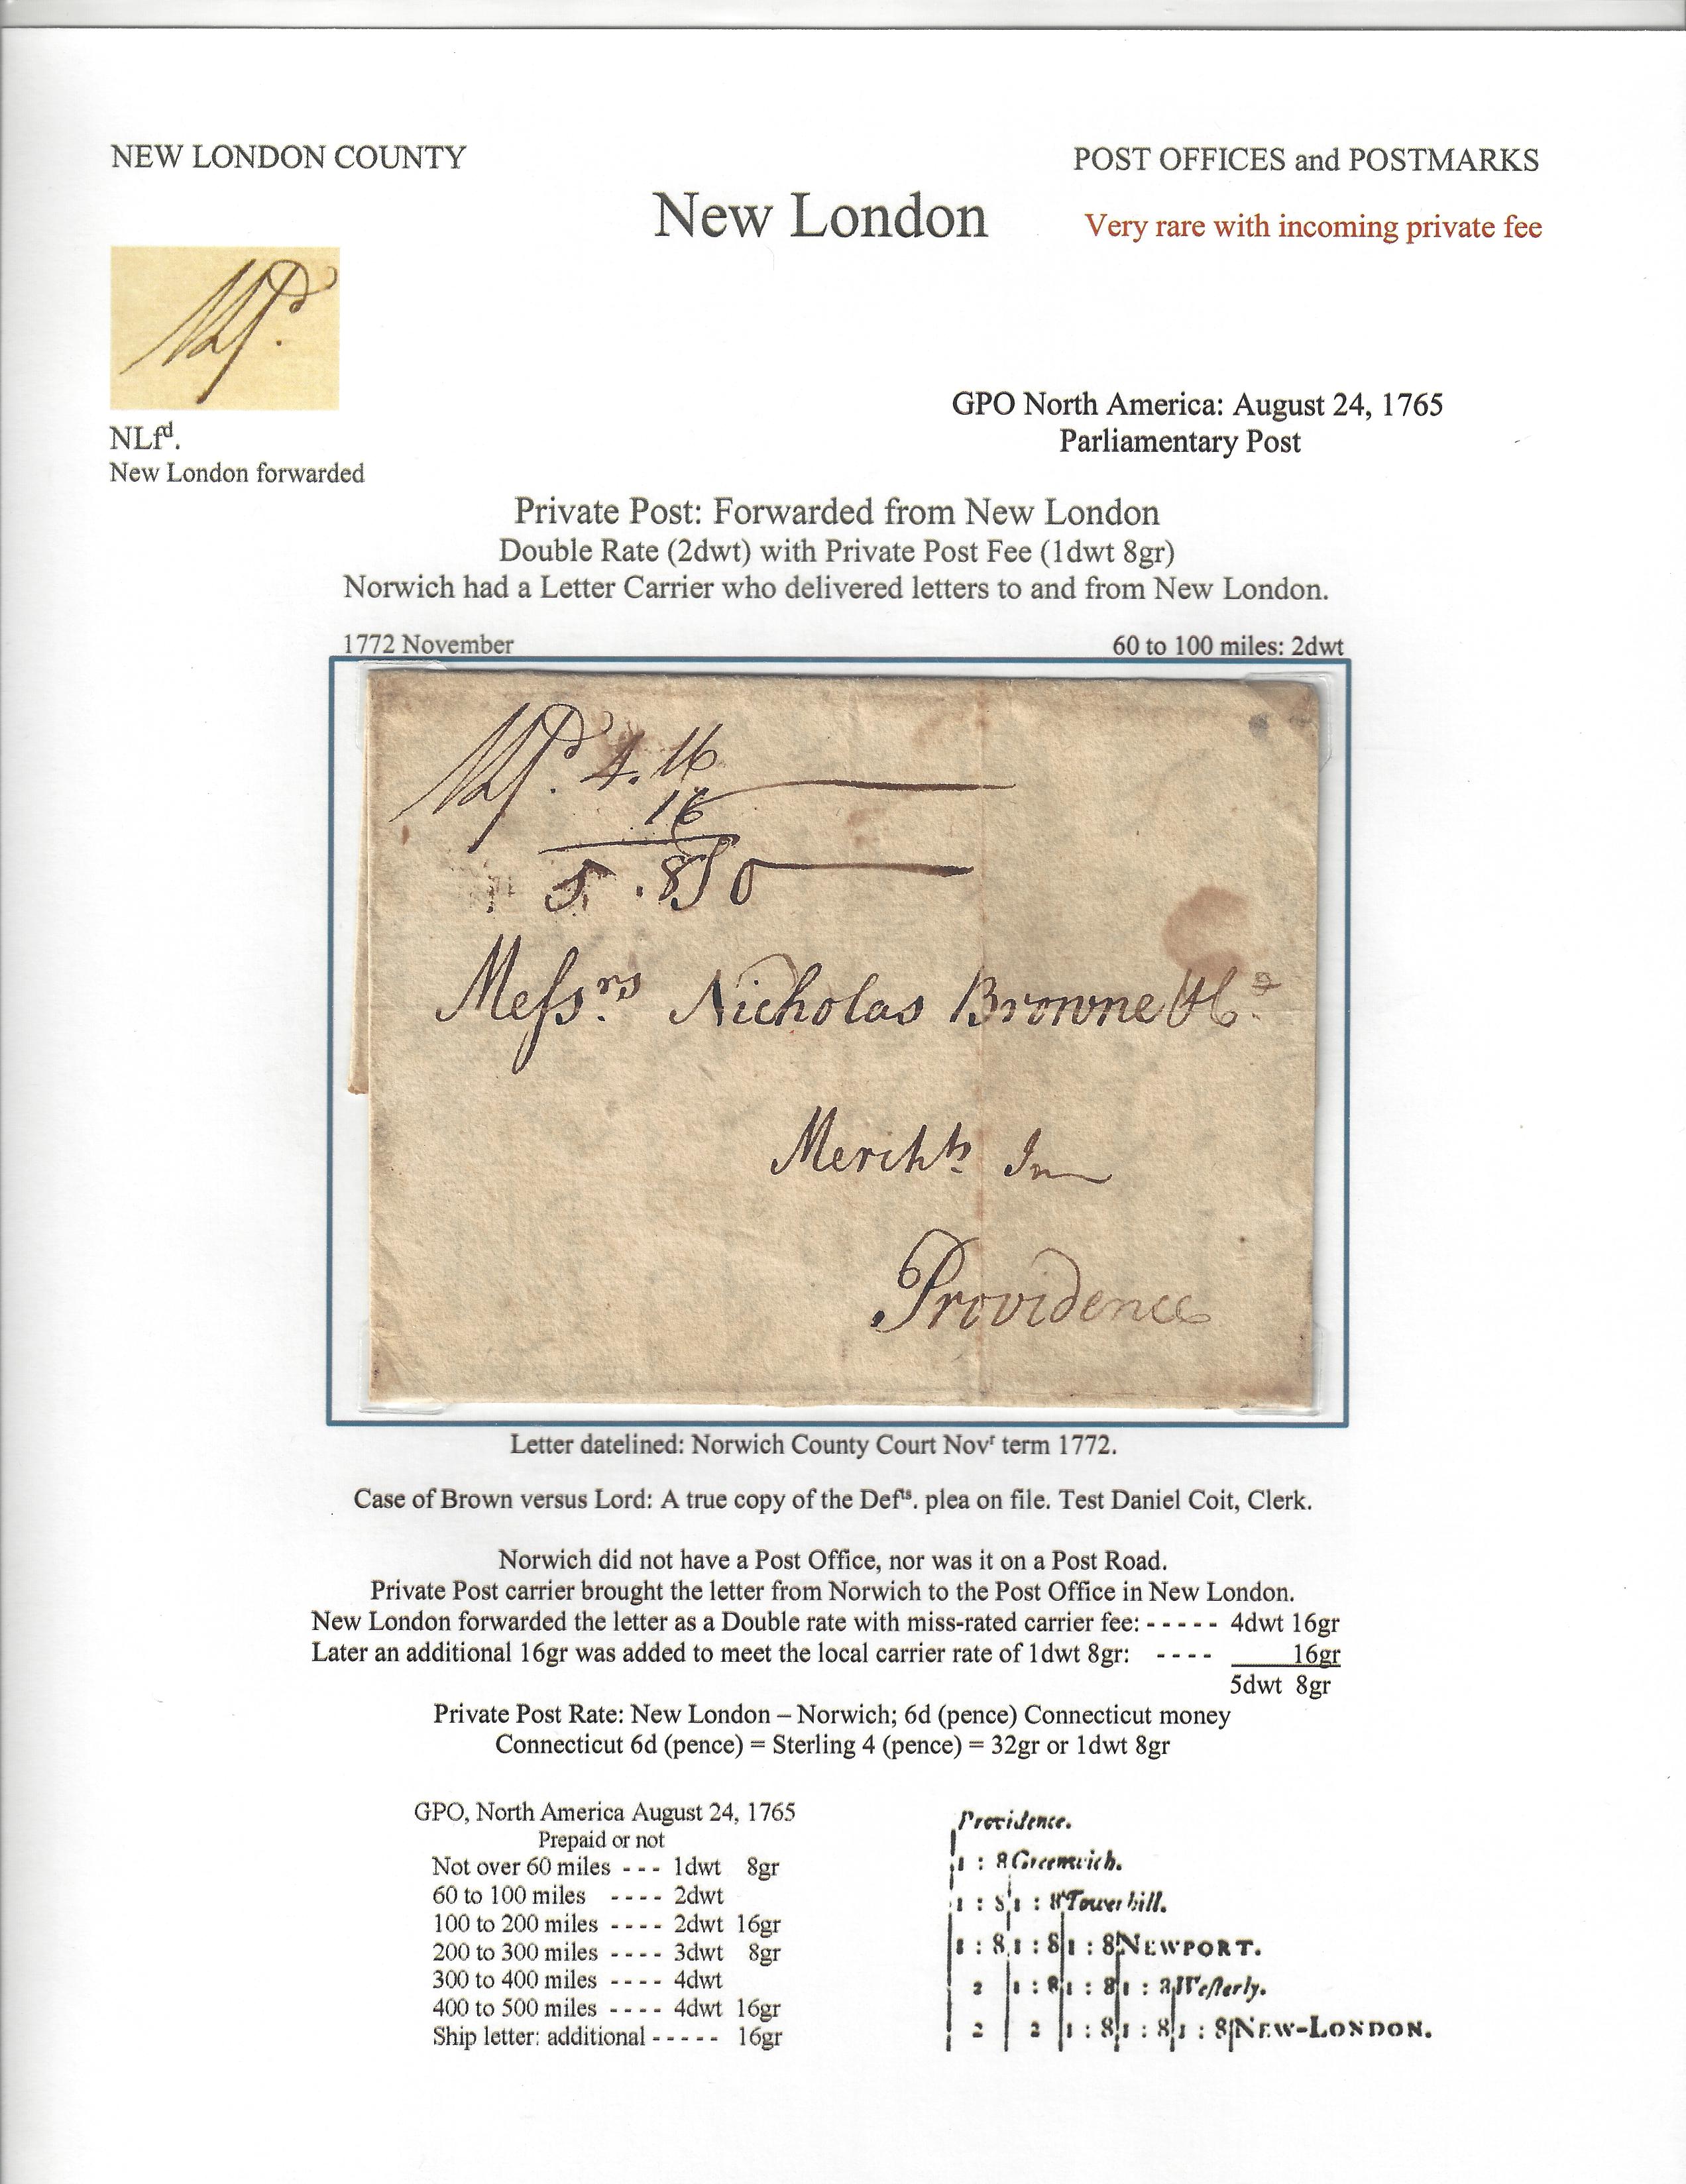 NEW LONDON COUNTY
POST OFFICES and POSTMARKS
New London
Very rare with incoming private fee
NLfd.
NLfᵈ.
New London forwarded
GPO North America: August 24, 1765
Parliamentary Post
Private Post: Forwarded from New London
Double Rate (2dwt) with Private Post Fee (1dwt 8gr)
Norwich had a Letter Carrier who delivered letters to and from New London.
1772 November
60 to 100 miles: 2dwt
NLfd. 4.16
16
5.8
Messrs Nicholas Browne & Co
Merchts In
Providence
Letter datelined: Norwich County Court Novʳ term 1772.
Case of Brown versus Lord: A true copy of the Defᵗˢ. plea on file. Test Daniel Coit, Clerk.
Norwich did not have a Post Office, nor was it on a Post Road.
Private Post carrier brought the letter from Norwich to the Post Office in New London.
New London forwarded the letter as a Double rate with miss-rated carrier fee: - - - - - 4dwt 16gr
Later an additional 16gr was added to meet the local carrier rate of 1dwt 8gr: - - - - 16gr
5dwt 8gr
Private Post Rate: New London – Norwich; 6d (pence) Connecticut money
Connecticut 6d (pence) = Sterling 4 (pence) = 32gr or 1dwt 8gr
GPO, North America August 24, 1765
Prepaid or not
Not over 60 miles - - - 1dwt 8gr
60 to 100 miles - - - - 2dwt
100 to 200 miles - - - - 2dwt 16gr
200 to 300 miles - - - - 3dwt 8gr
300 to 400 miles - - - - 4dwt
400 to 500 miles - - - - 4dwt 16gr
Ship letter: additional - - - - - 16gr
Providence.
1 : 8 Greenwich.
1 : 8 1 : 8 Towerhill.
1 : 8 1 : 8 1 : 8 NEWPORT.
2 1 : 8 1 : 8 1 : 8 Westerly.
2 2 1 : 8 1 : 8 1 : 8 NEW-LONDON.